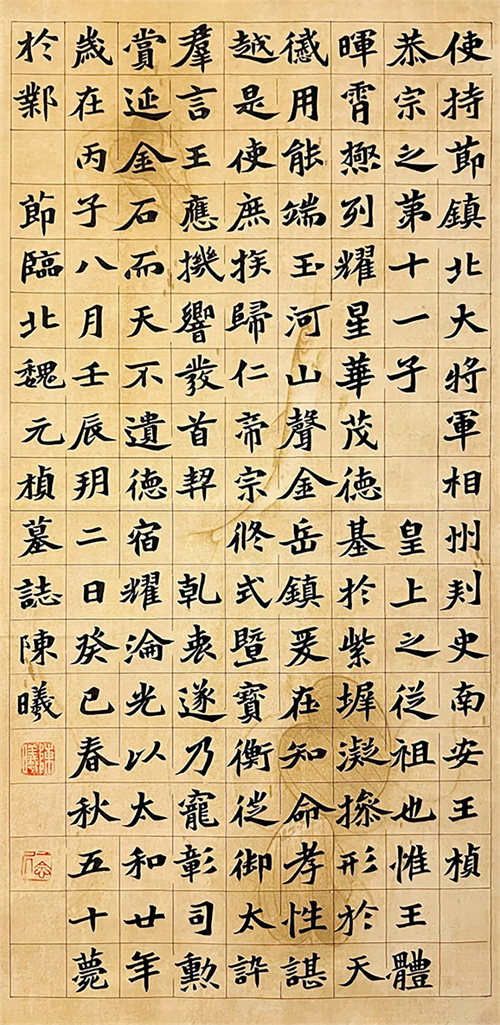 使持節鎮北大將軍相州刾史南安王楨
恭宗之第十一子 皇上之從祖也惟王體
暉霄極列耀星華茂德基於紫墀凝操形於天
感用能端玉河山聲金岳鎮爰在知命孝性諶
越是使庶族歸仁帝宗攸式暨寶衡從御太訡
羣言王應機響發首契 乾衷遂乃寵彰司勳
賞延金石而天不遺德宿耀淪光以太和廿年
歲在丙子八月壬辰朔二日癸巳春秋五十薨
於鄴 節臨北魏元楨墓誌陳曦
陳曦